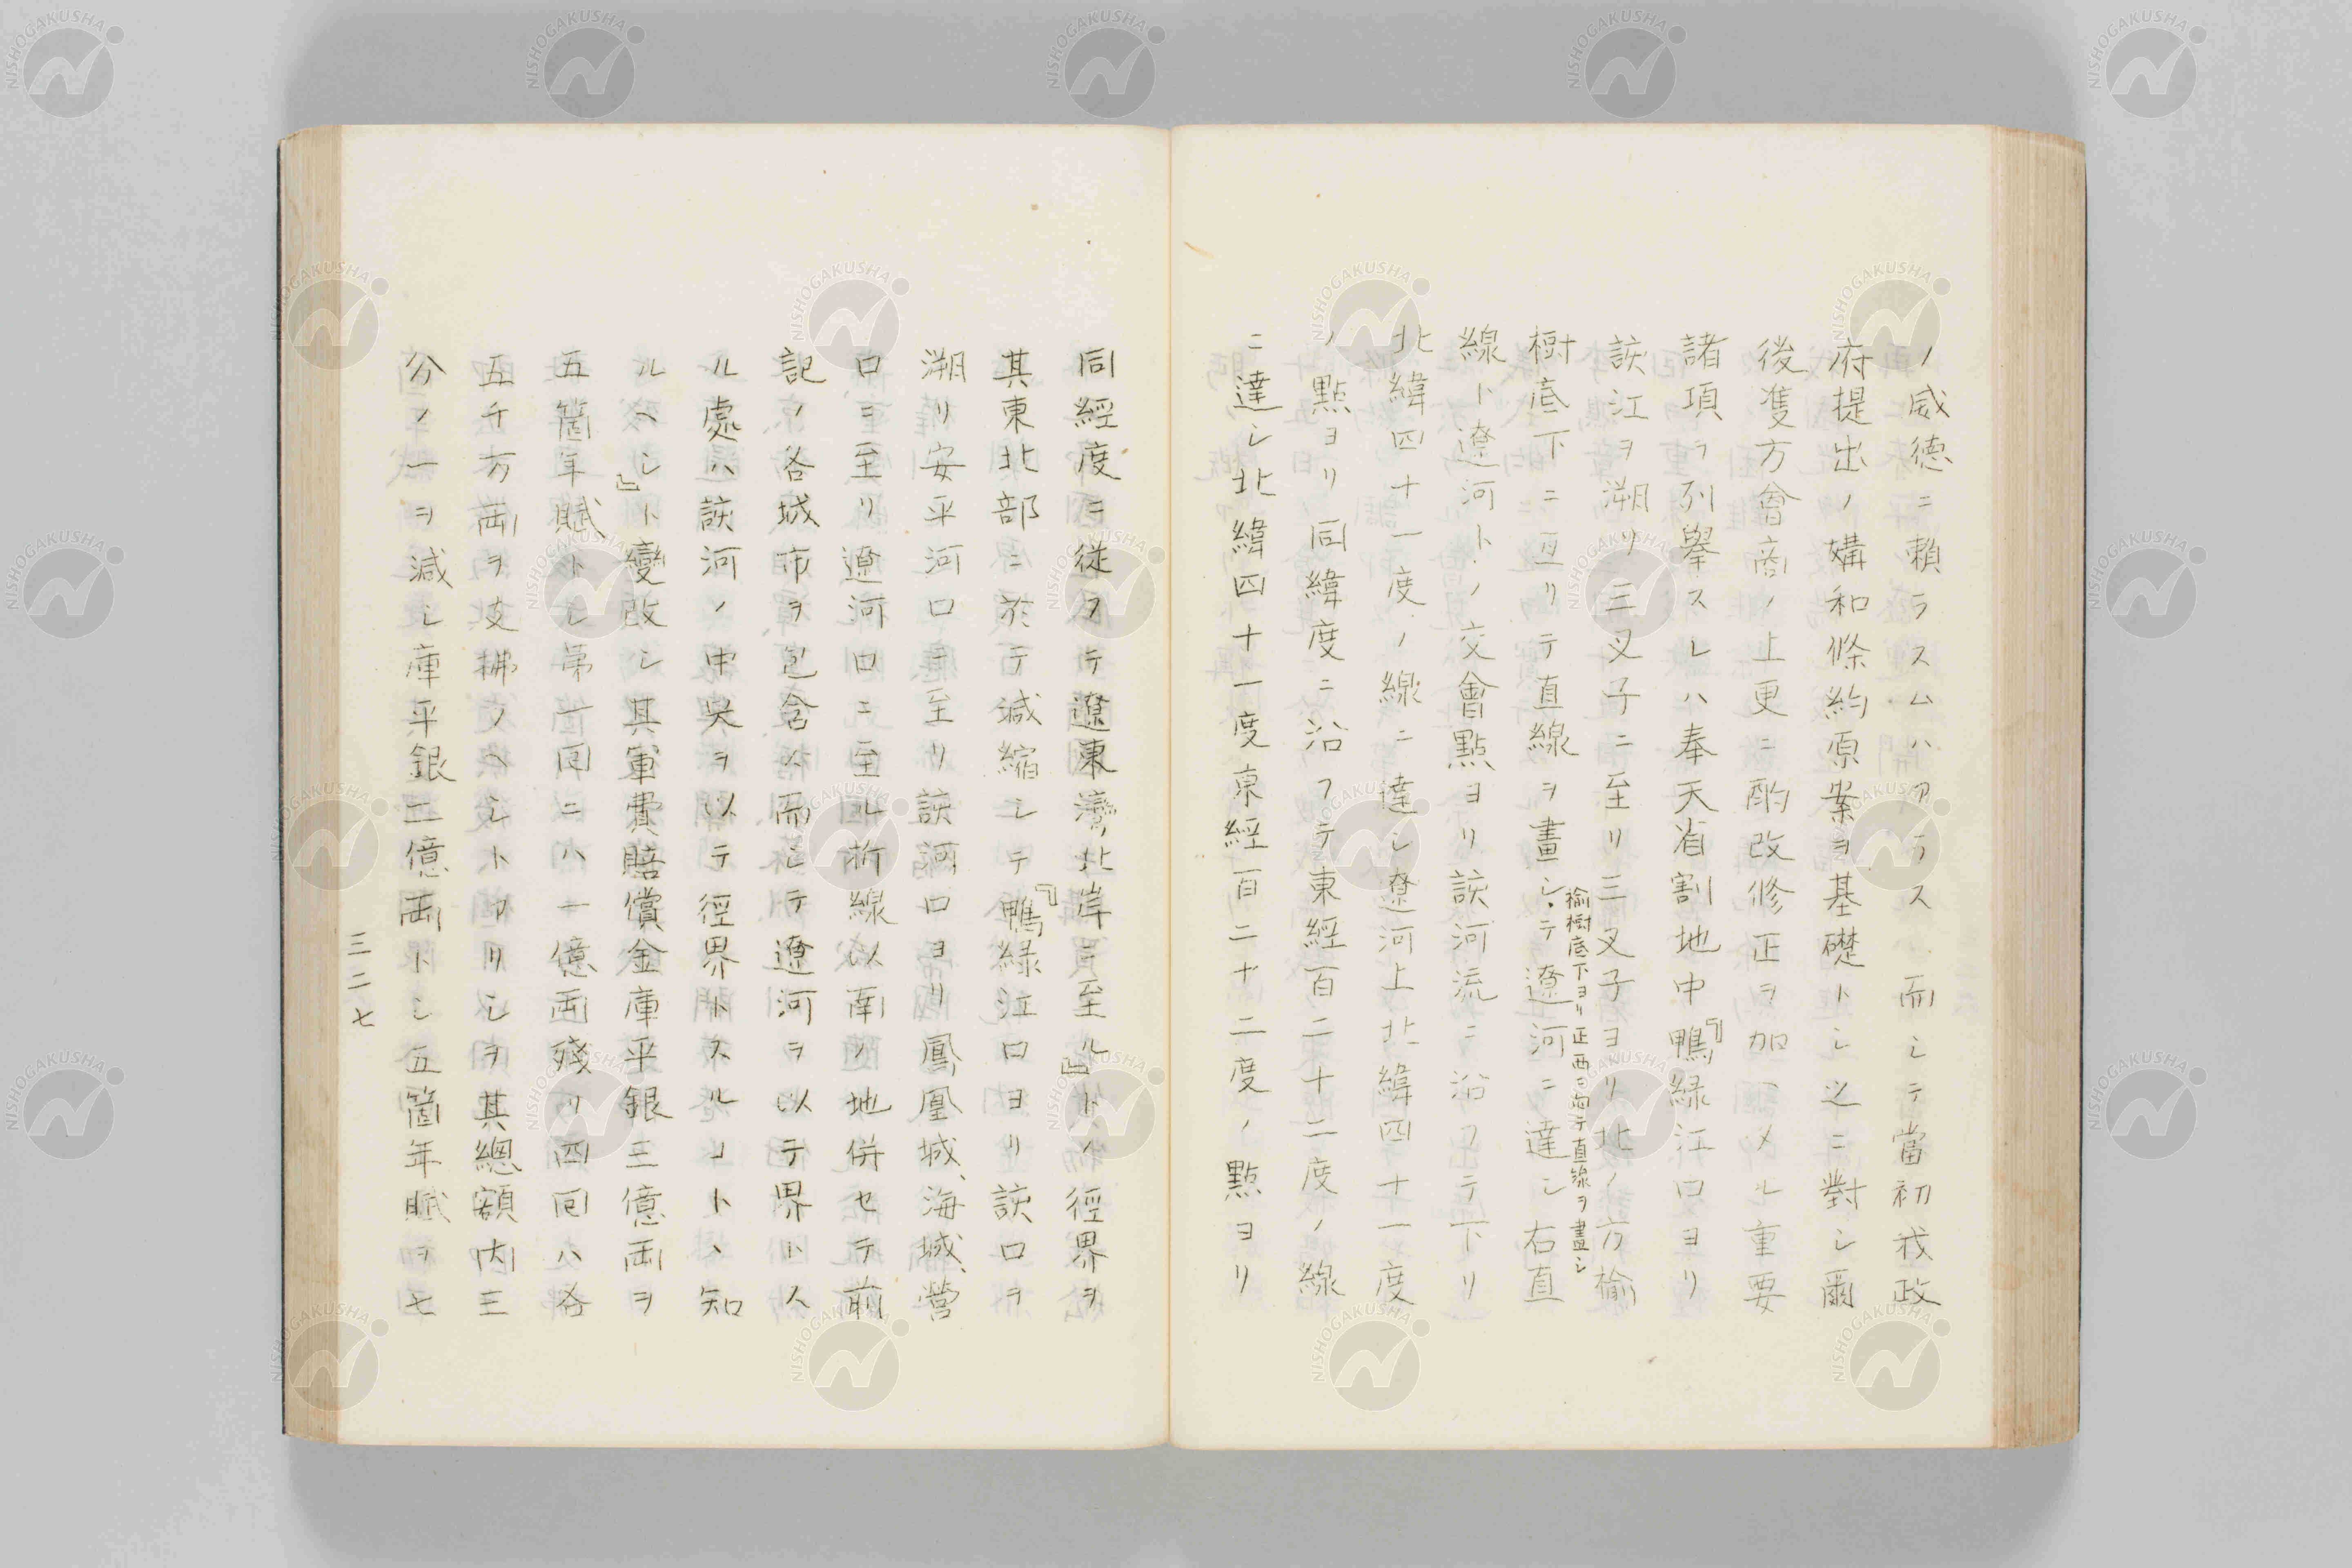 ノ威德ニ賴ラスムハアラス、而シテ當初我政
府提出ノ媾和條約原案ヲ基礎トシ之ニ對シ爾
後隻方會商ノ上更ニ酌改修正ヲ加ヘタル重要
諸項ヲ列擧スレハ奉天省割地中『鴨綠江口ヨリ
該江ヲ溯リ三叉子ニ至リ三叉子ヨリ北ノ方榆
榆樹底下ヨリ正西ニ向テ直線ヲ畫シ
樹底下ニ亘リテ直線ヲ畫シ、テ遼河ニ達シ右直
線ト遼河トノ交會點ヨリ該河流ニ沿フテ下リ
北緯四十一度ノ線ニ達シ遼河上北緯四十一度
ノ點ヨリ同緯度ニ沿フテ東經百二十二度ノ線
ニ達シ北緯四十一度東經百二十二度ノ點ヨリ
同經度ニ從フテ遼東灣北岸ニ至ル』トノ徑界ヲ
其東北部ニ於テ減縮シテ『鴨綠江口ヨリ該口ヲ
溯リ安平河口ニ至リ該河口ヨリ鳳凰城、海城、營
口ヨ至リ遼河口ニ至ル折線以南ノ地併セテ前
記ノ各城市ヲ包含ス而シテ遼河ヲ以テ界トス
ル處ハ該河ノ中央ヲ以テ徑界トスルコト、知
ルヘシ』ト變改シ其軍費賠償金庫平銀三億兩ヲ
五箇年賦トシ第一回ニハ一億兩殘リ四回ハ各
五千万兩ヲ支拂フヘシトアリシヲ其總額內三
分ノ一ヲ減シ庫平銀二億兩トシ五箇年賦ヲ七
三二七
NISHOGAKUSHA